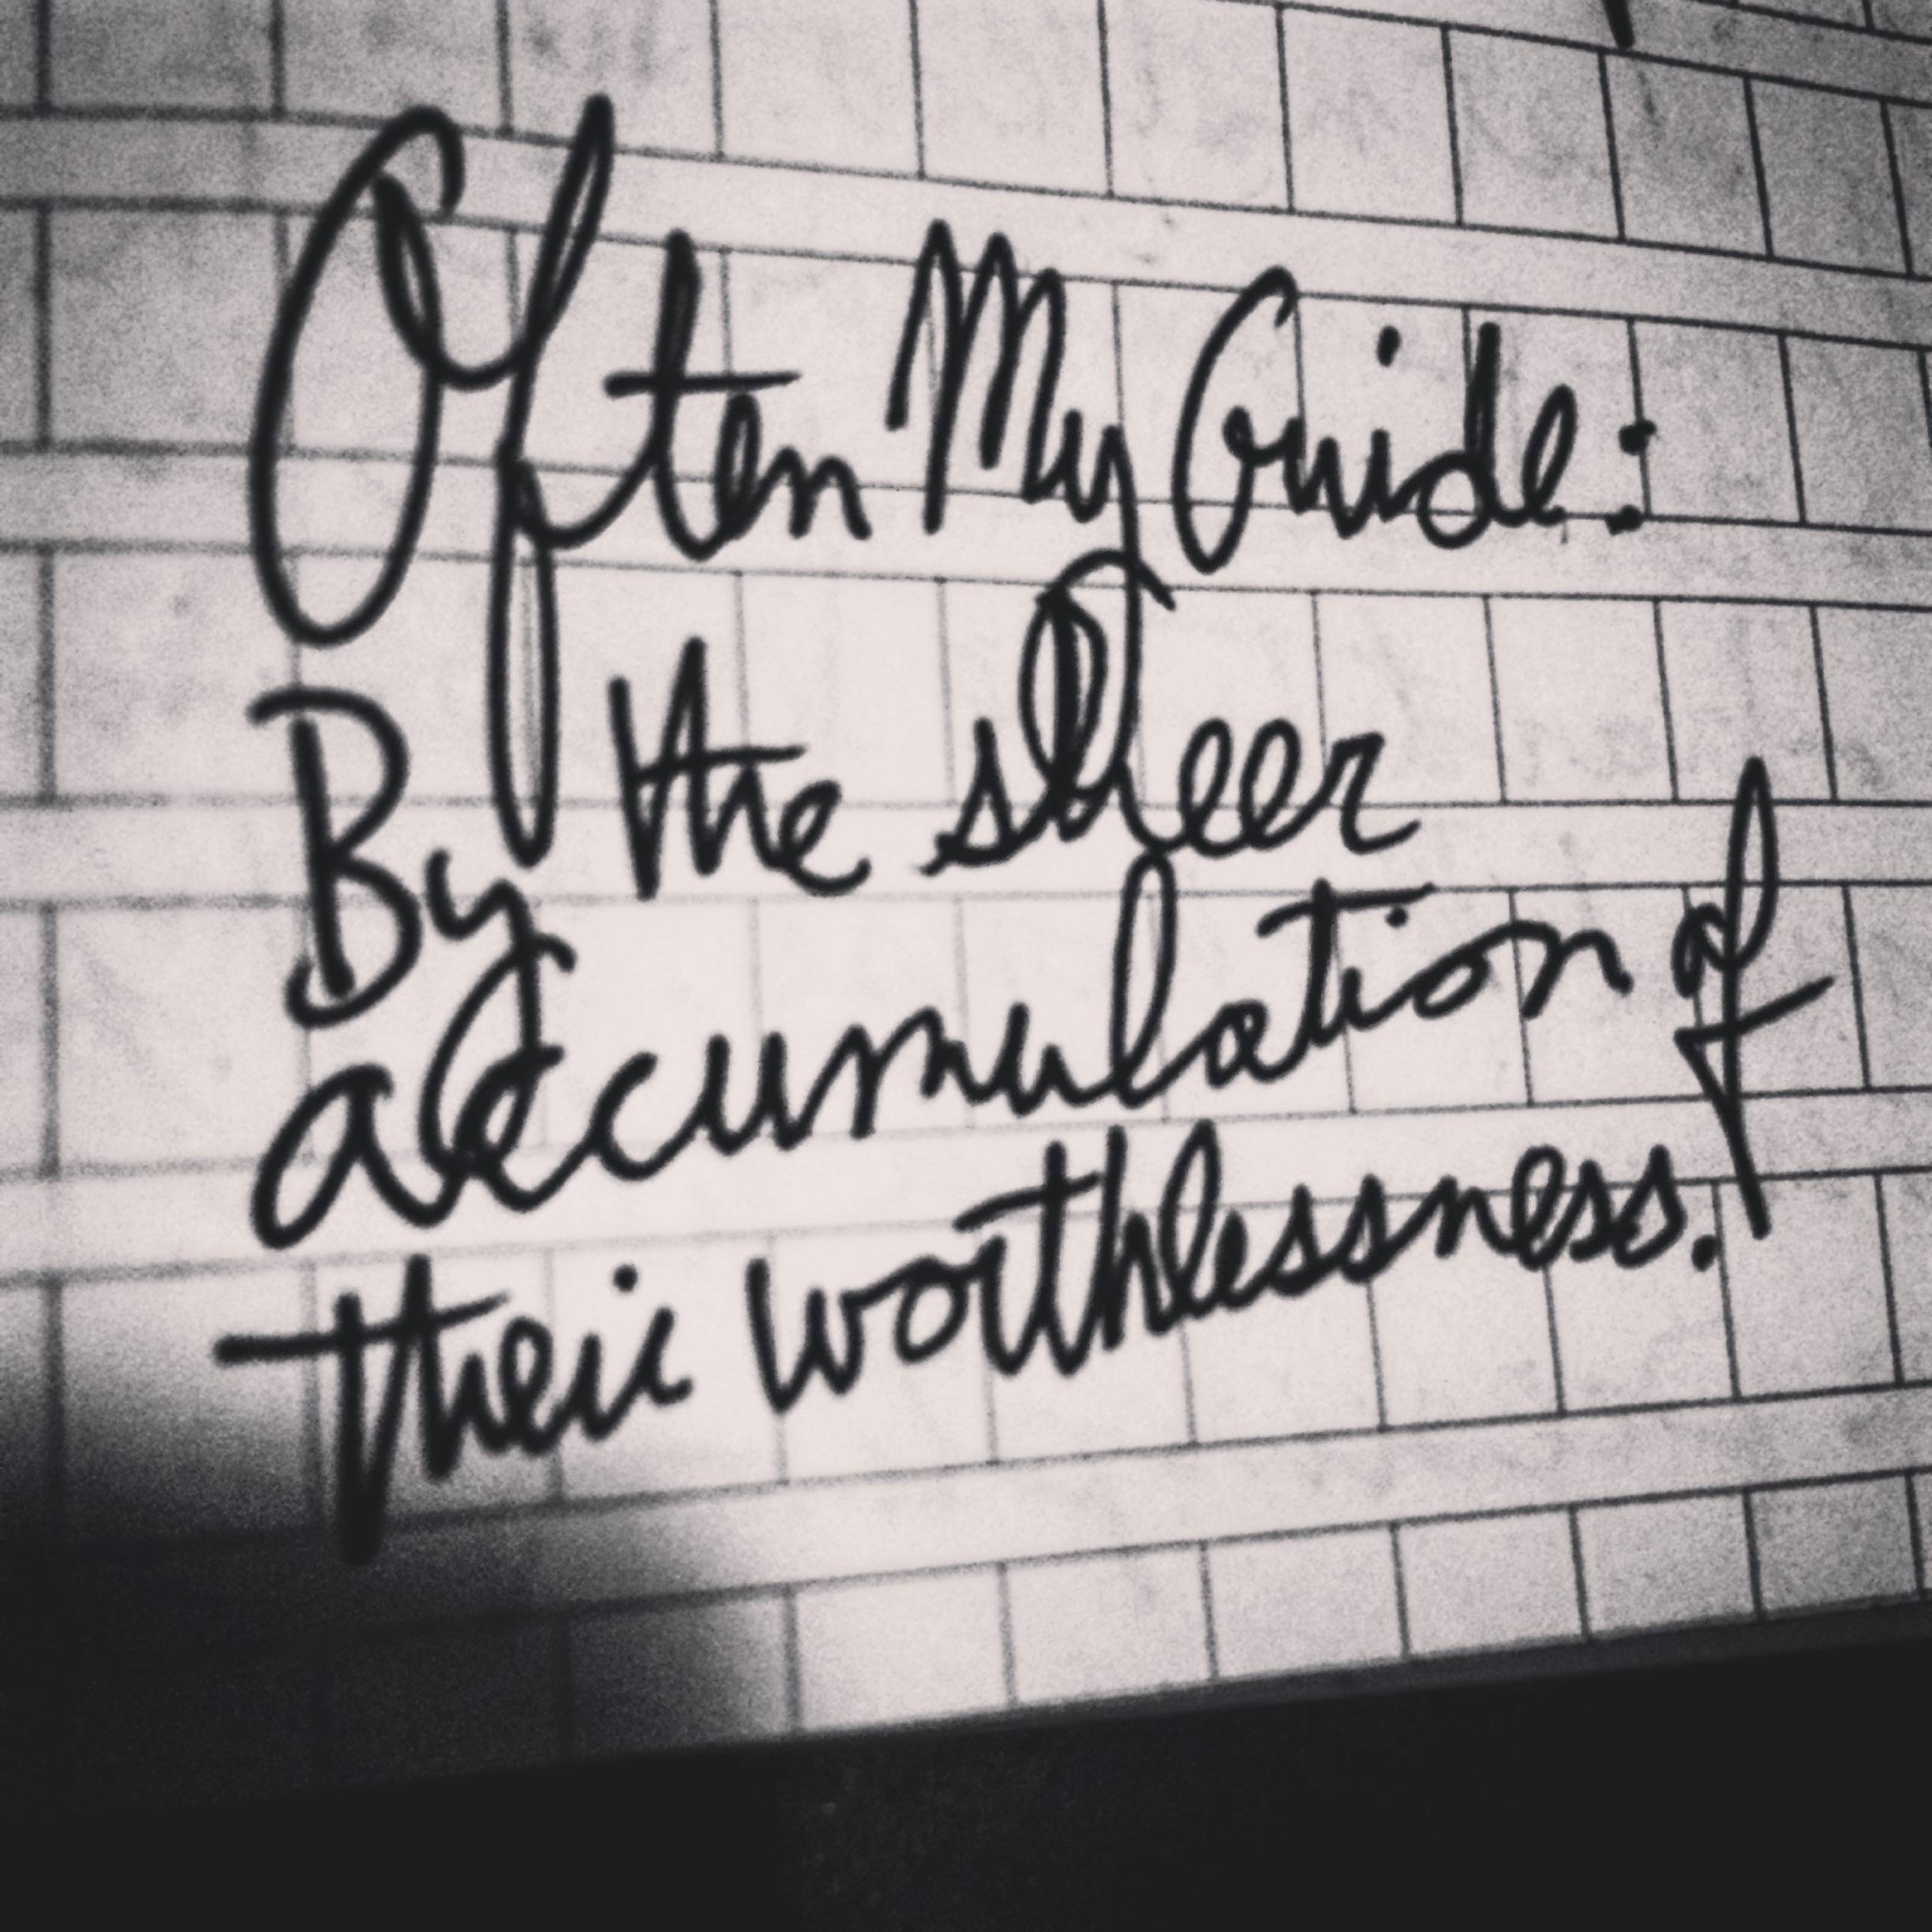 Often My Guide:
By the sheer
accumulation of
their worthlessness.